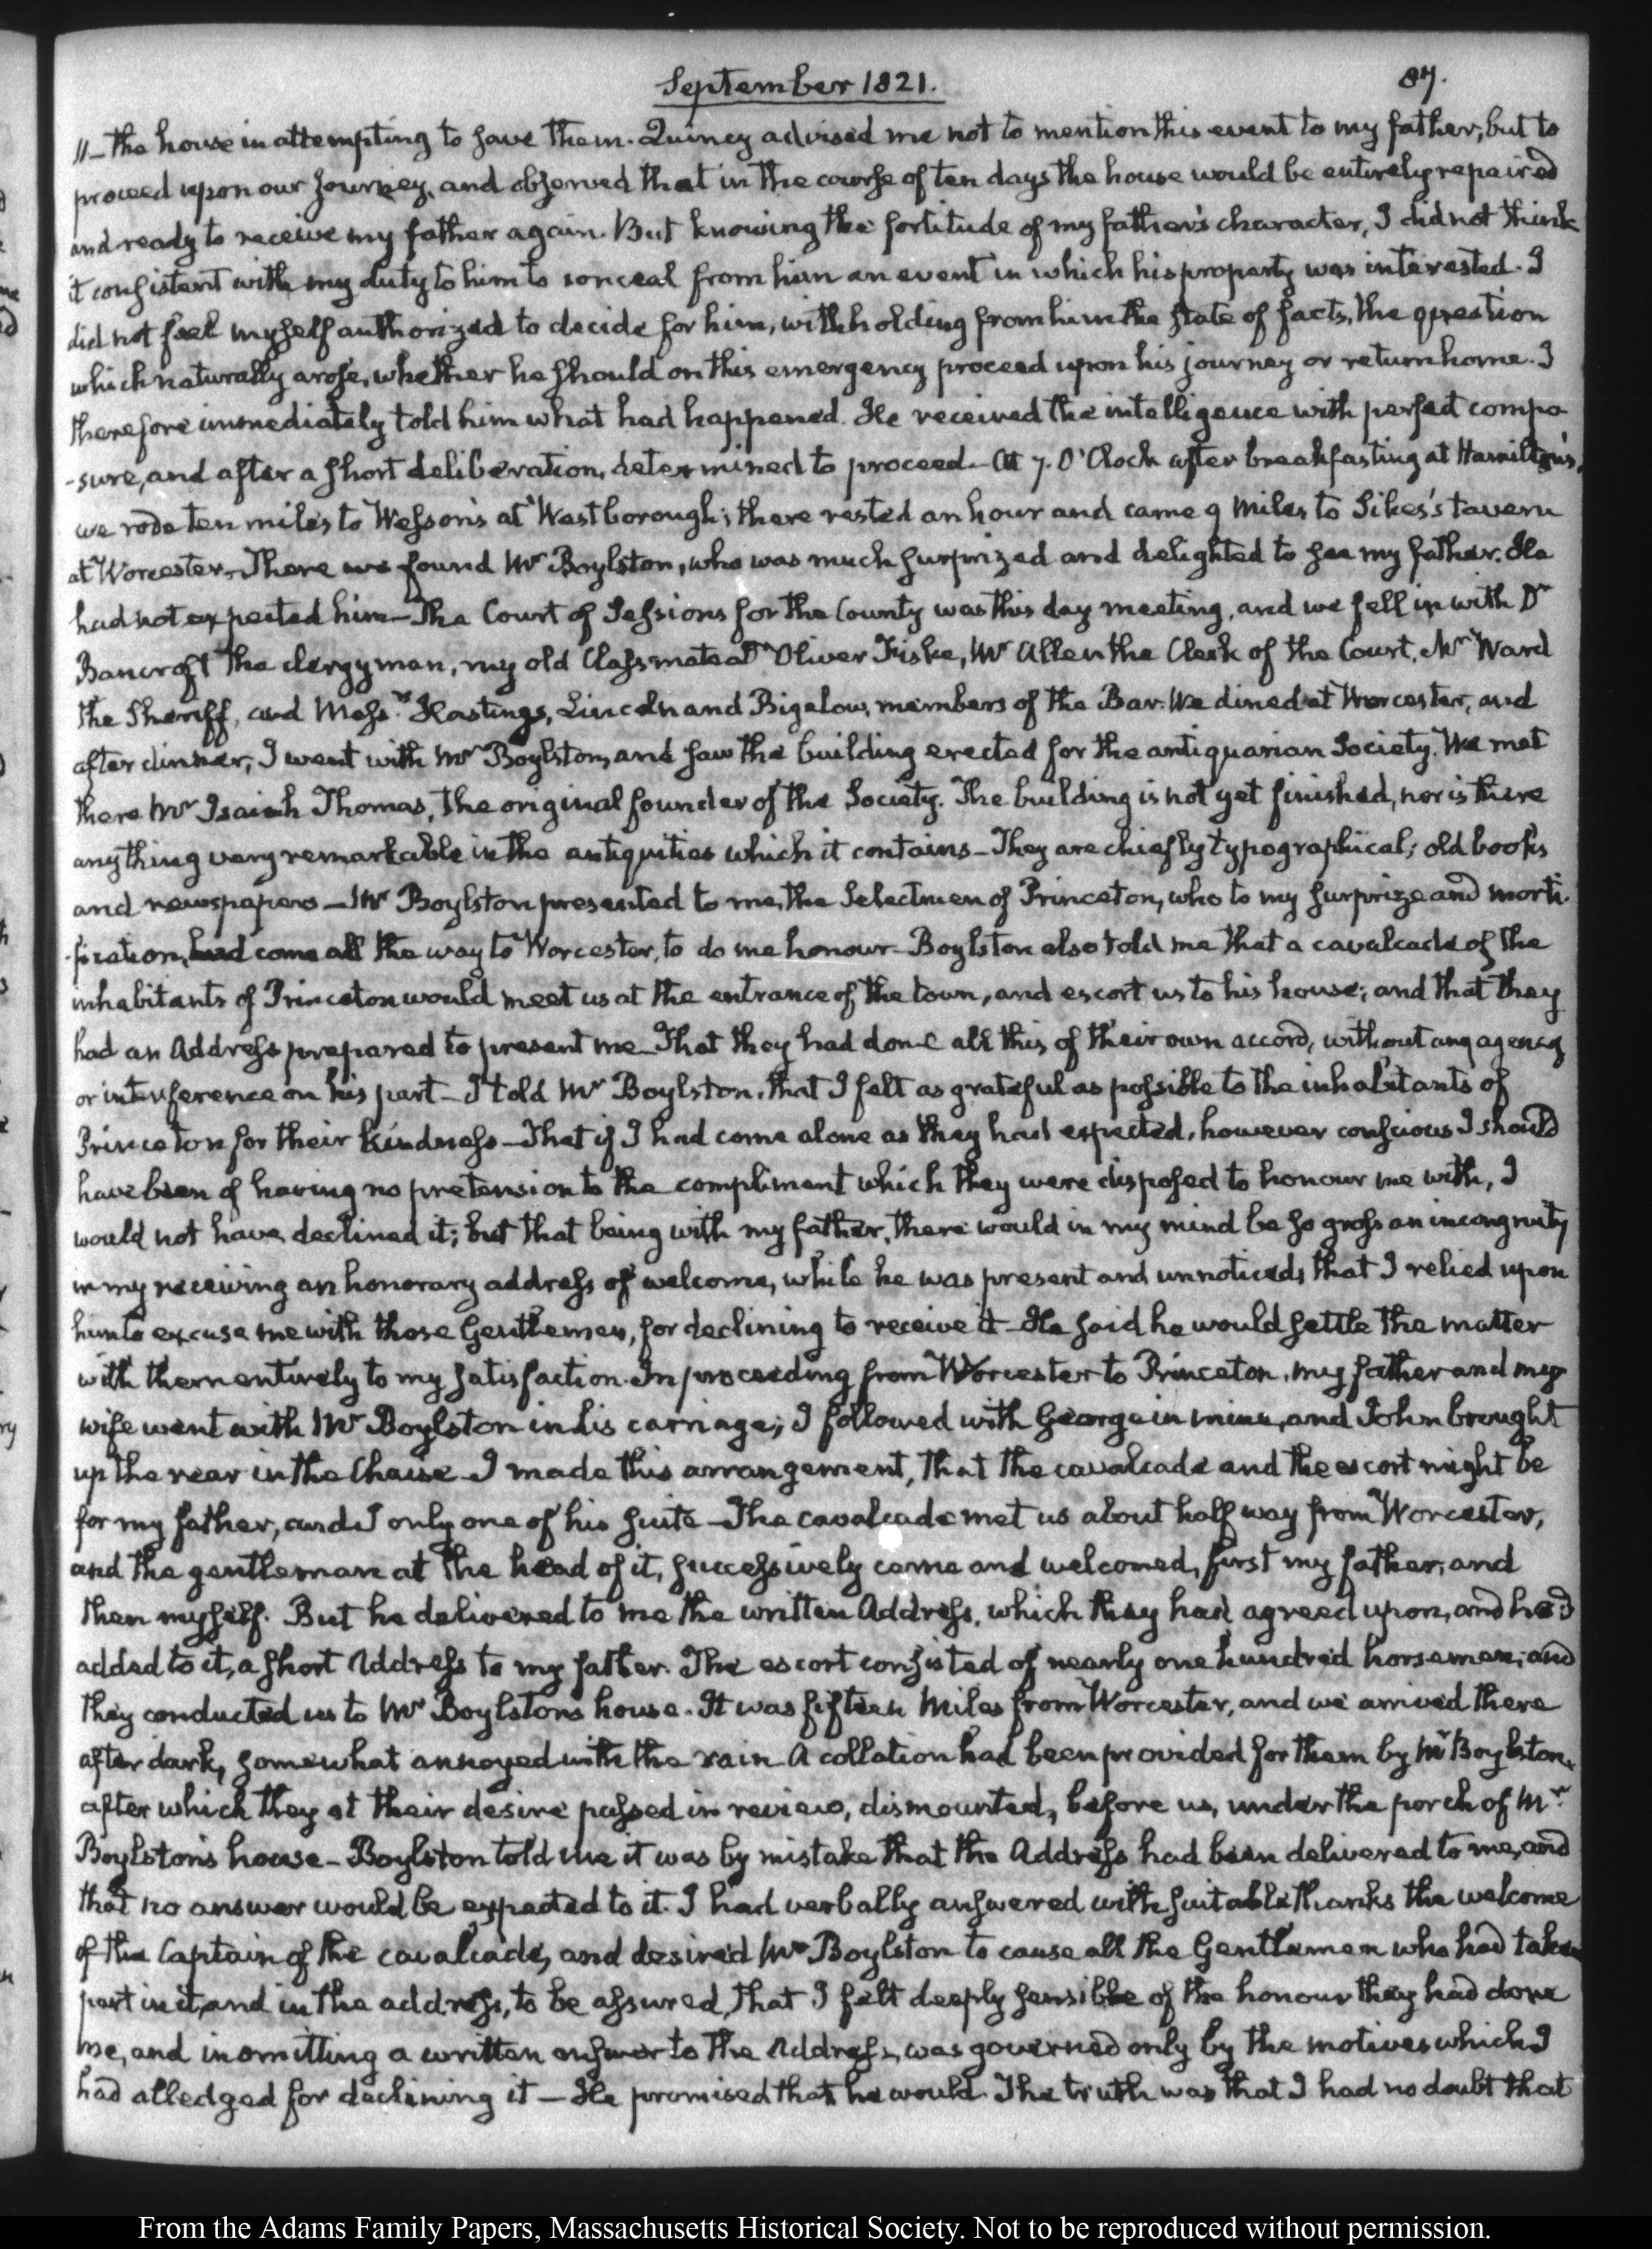 September 1821.
87.
11— the house in attempting to save them. Quincy advised me not to mention this event to my father, but to
proceed upon our journey, and observed that in the course of ten days the house would be entirely repaired
and ready to receive my father again. But knowing the fortitude of my father's character, I did not think
it consistent with my duty to him to conceal from him an event in which his property was interested. I
did not feel myself authorized to decide for him, withholding from him the state of facts, the question
which naturally arose, whether he should on this emergency proceed upon his journey or return home. I
therefore immediately told him what had happened. He received the intelligence with perfect compo-
-sure, and after a short deliberation, determined to proceed— At 7. O'Clock after breakfasting at Hamilton's,
we rode ten miles to Wesson's at Westborough; there rested an hour and came 9 miles to Sikes's tavern
at Worcester— There we found Mr Boylston, who was much surprized and delighted to see my father. He
had not expected him— The Court of Sessions for the County was this day meeting, and we fell in with Dr
Bancroft the clergyman, my old Classmate Dr Oliver Fiske, Mr Allen the Clerk of the Court, Mr Ward
the Sheriff, and Messrs Hastings, Lincoln and Bigelow, members of the Bar. We dined at Worcester, and
after dinner, I went with Mr Boylston, and saw the building erected for the antiquarian Society. We met
there Mr Isaiah Thomas, the original founder of the Society. The building is not yet finished, nor is there
any thing very remarkable in the antiquities which it contains— They are chiefly typographical; old books
and newspapers— Mr Boylston presented to me, the Selectmen of Princeton, who to my surprize and morti-
-fication, had come all the way to Worcester, to do me honour— Boylston also told me that a cavalcade of the
inhabitants of Princeton would meet us at the entrance of the town, and escort us to his house; and that they
had an Address prepared to present me— That they had done all this of their own accord, without any agency
or interference on his part— I told Mr Boylston, that I felt as grateful as possible to the inhabitants of
Princeton for their kindness— That if I had come alone as they had expected, however conscious I should
have been of having no pretension to the compliment which they were disposed to honour me with, I
would not have declined it; but that being with my father, there would in my mind be so gross an incongruity
in my receiving an honorary address of welcome, while he was present and unnoticed, that I relied upon
him to excuse me with those Gentlemen, for declining to receive it— He said he would settle the matter
with them entirely to my satisfaction. In proceeding from Worcester to Princeton, my father and my
wife went with Mr Boylston in his carriage; I followed with George in mine, and John brought
up the rear in the Chaise— I made this arrangement, that the cavalcade and the escort might be
for my father, and I only one of his suite— The cavalcade met us about half way from Worcester,
and the gentleman at the head of it, successively came and welcomed, first my father, and
then myself. But he delivered to me the written Address, which they had agreed upon, and had
added to it, a short Address to my father. The escort consisted of nearly one hundred horsemen; and
they conducted us to Mr Boylston's house. It was fifteen Miles from Worcester, and we arrived there
after dark, somewhat annoyed with the rain— A collation had been provided for them by Mr Boylston,
after which they at their desire passed in review, dismounted, before us, under the porch of Mr
Boylston's house— Boylston told me it was by mistake that the Address had been delivered to me, and
that no answer would be expected to it. I had verbally answered with suitable thanks the welcome
of the Captain of the cavalcade, and desired Mr Boylston to cause all the Gentlemen who had taken
part in it, and in the address, to be assured, that I felt deeply sensible of the honour they had done
me, and in omitting a written answer to the Address, was governed only by the motives which I
had alledged for declining it— He promised that he would. The truth was that I had no doubt that
From the Adams Family Papers, Massachusetts Historical Society. Not to be reproduced without permission.